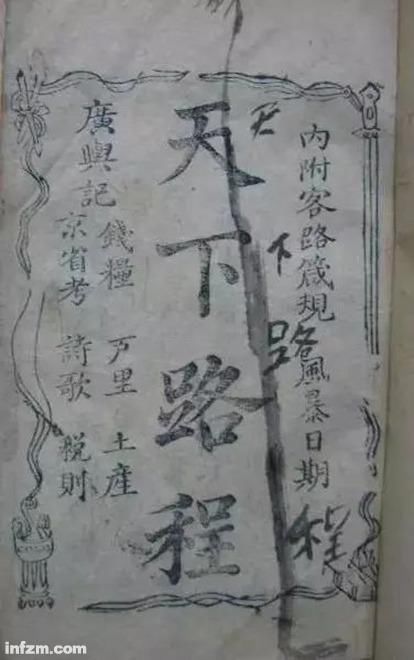 內附客路箴規風暴日期
天下路程
天下路程
廣輿記
錢糧 万里 土產
京省考 詩歌 稅則
infzm.com